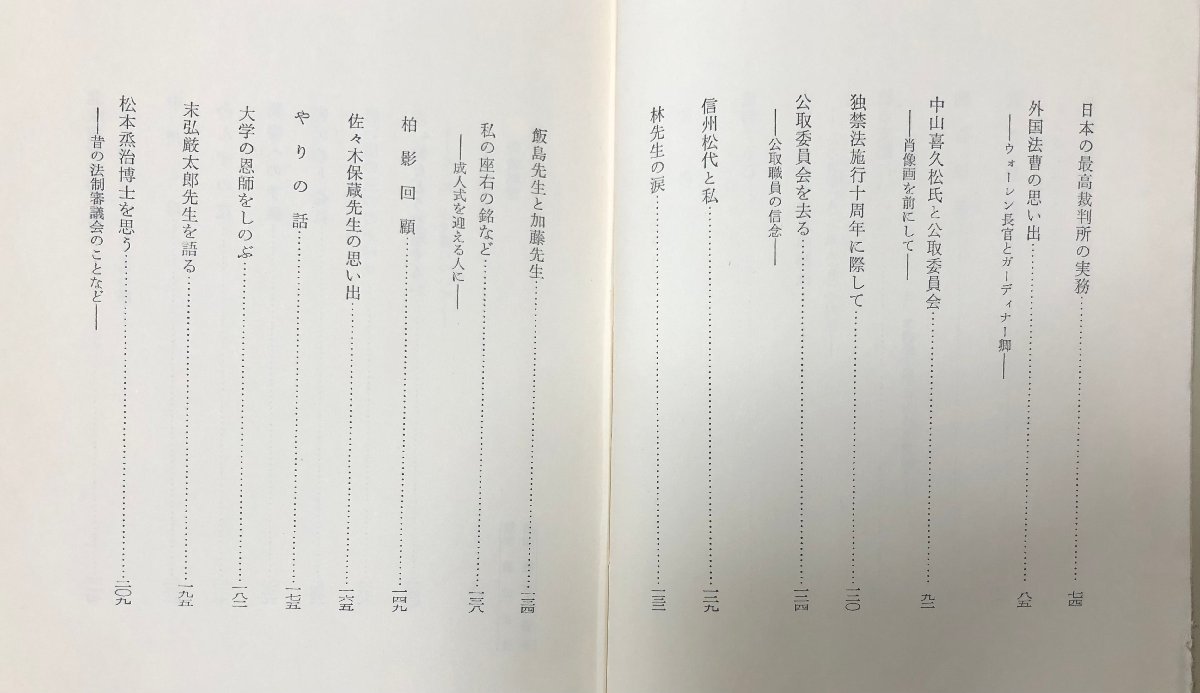 日本の最高裁判所の実務……七四
外国法曹の思い出……八五
――ウォーレン長官とガーディナー卿――
中山喜久松氏と公取委員会……九二
――肖像画を前にして――
独禁法施行十周年に際して……一二〇
公取委員会を去る……一二四
――公取職員の信念――
信州松代と私……一二九
林先生の涙……一三二
飯島先生と加藤先生……一三四
私の座右の銘など……一三八
――成人式を迎える人に――
柏影回顧……一四九
佐々木保蔵先生の思い出……一六五
やりの話……一七五
大学の恩師をしのぶ……一八二
末弘厳太郎先生を語る……一九五
松本烝治博士を思う……二〇九
――昔の法制審議会のことなど――